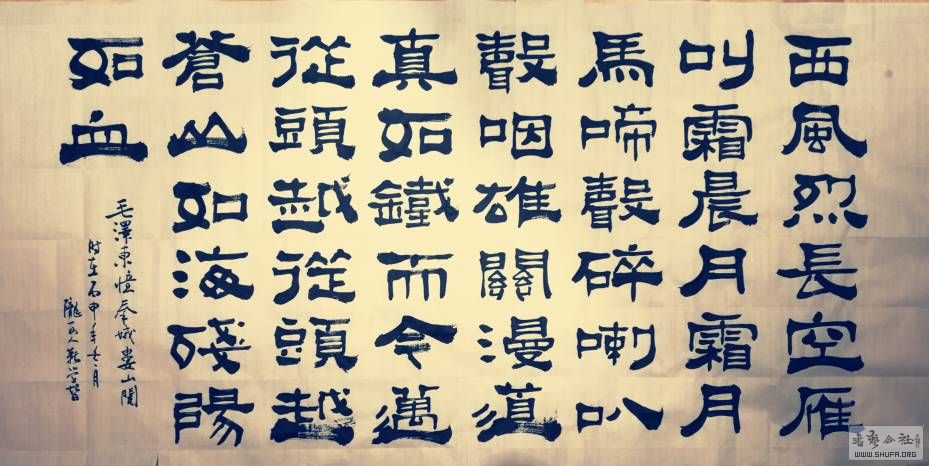 西風烈長空雁
叫霜晨月霜月
馬啼聲碎喇叭
聲咽雄關漫道
真如鐵而今邁
從頭越從頭越
蒼山如海殘陽
如血
毛澤東憶秦娥婁山關
时在丙申年月
書藝公社
WWW.SHUFA.ORG